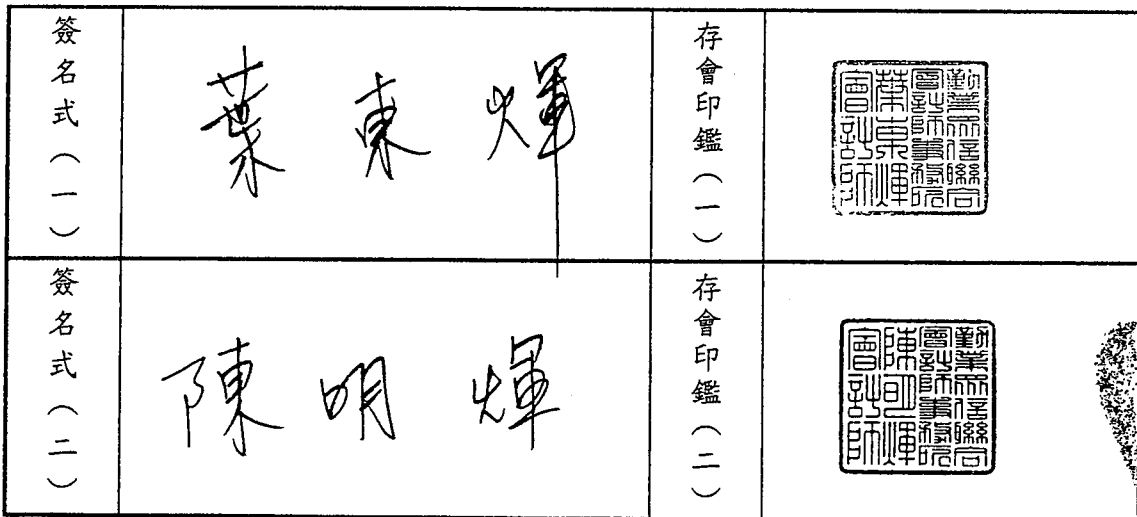 簽名式（一）
葉東煇
存會印鑑（一）
勤業眾信聯合
會計師事務所
葉東煇
會計師
簽名式（二）
陳明煇
存會印鑑（二）
勤業眾信聯合
會計師事務所
陳明煇
會計師